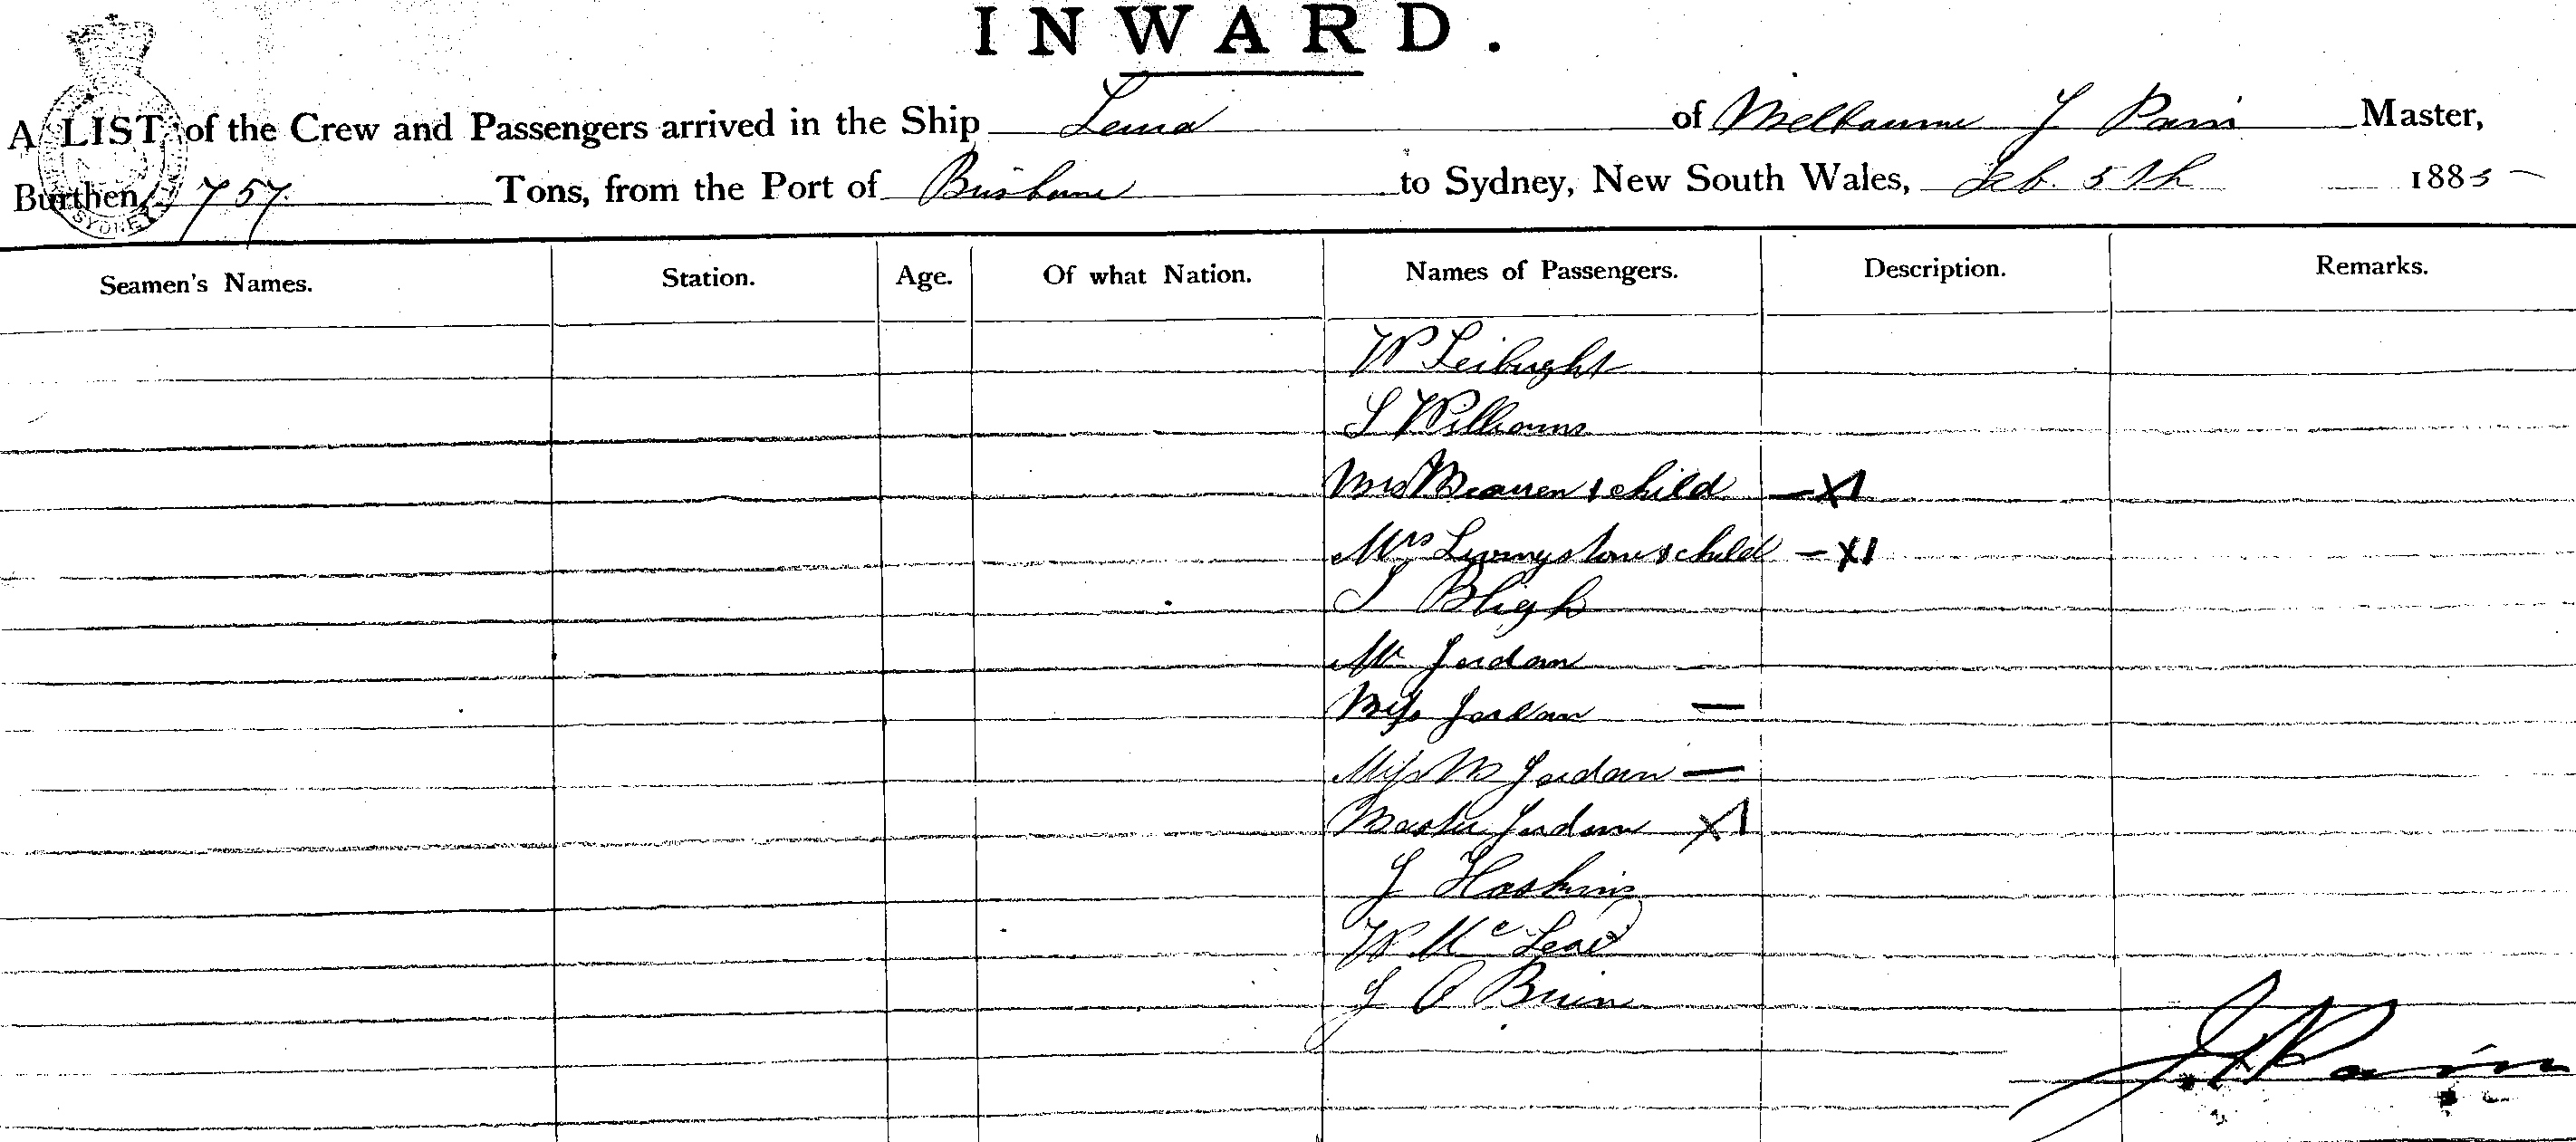 INWARD.
A LIST of the Crew and Passengers arrived in the Ship Leura of Melbourne J Pain Master,
Burthen 757 Tons, from the Port of Brisbane to Sydney, New South Wales, Feb. 5th 1885
Seamen's Names. Station. Age. Of what Nation. Names of Passengers. Description. Remarks.
W
S Williams
Mrs & child — X1
Mrs Livingstone & child — X1
Bligh
Mr Jordan —
Miss Jordan —
Miss M Jordan —
Master Jordan X1
J Hoskins
W McLeod
J O Brien
J. Pain
SYDNEY